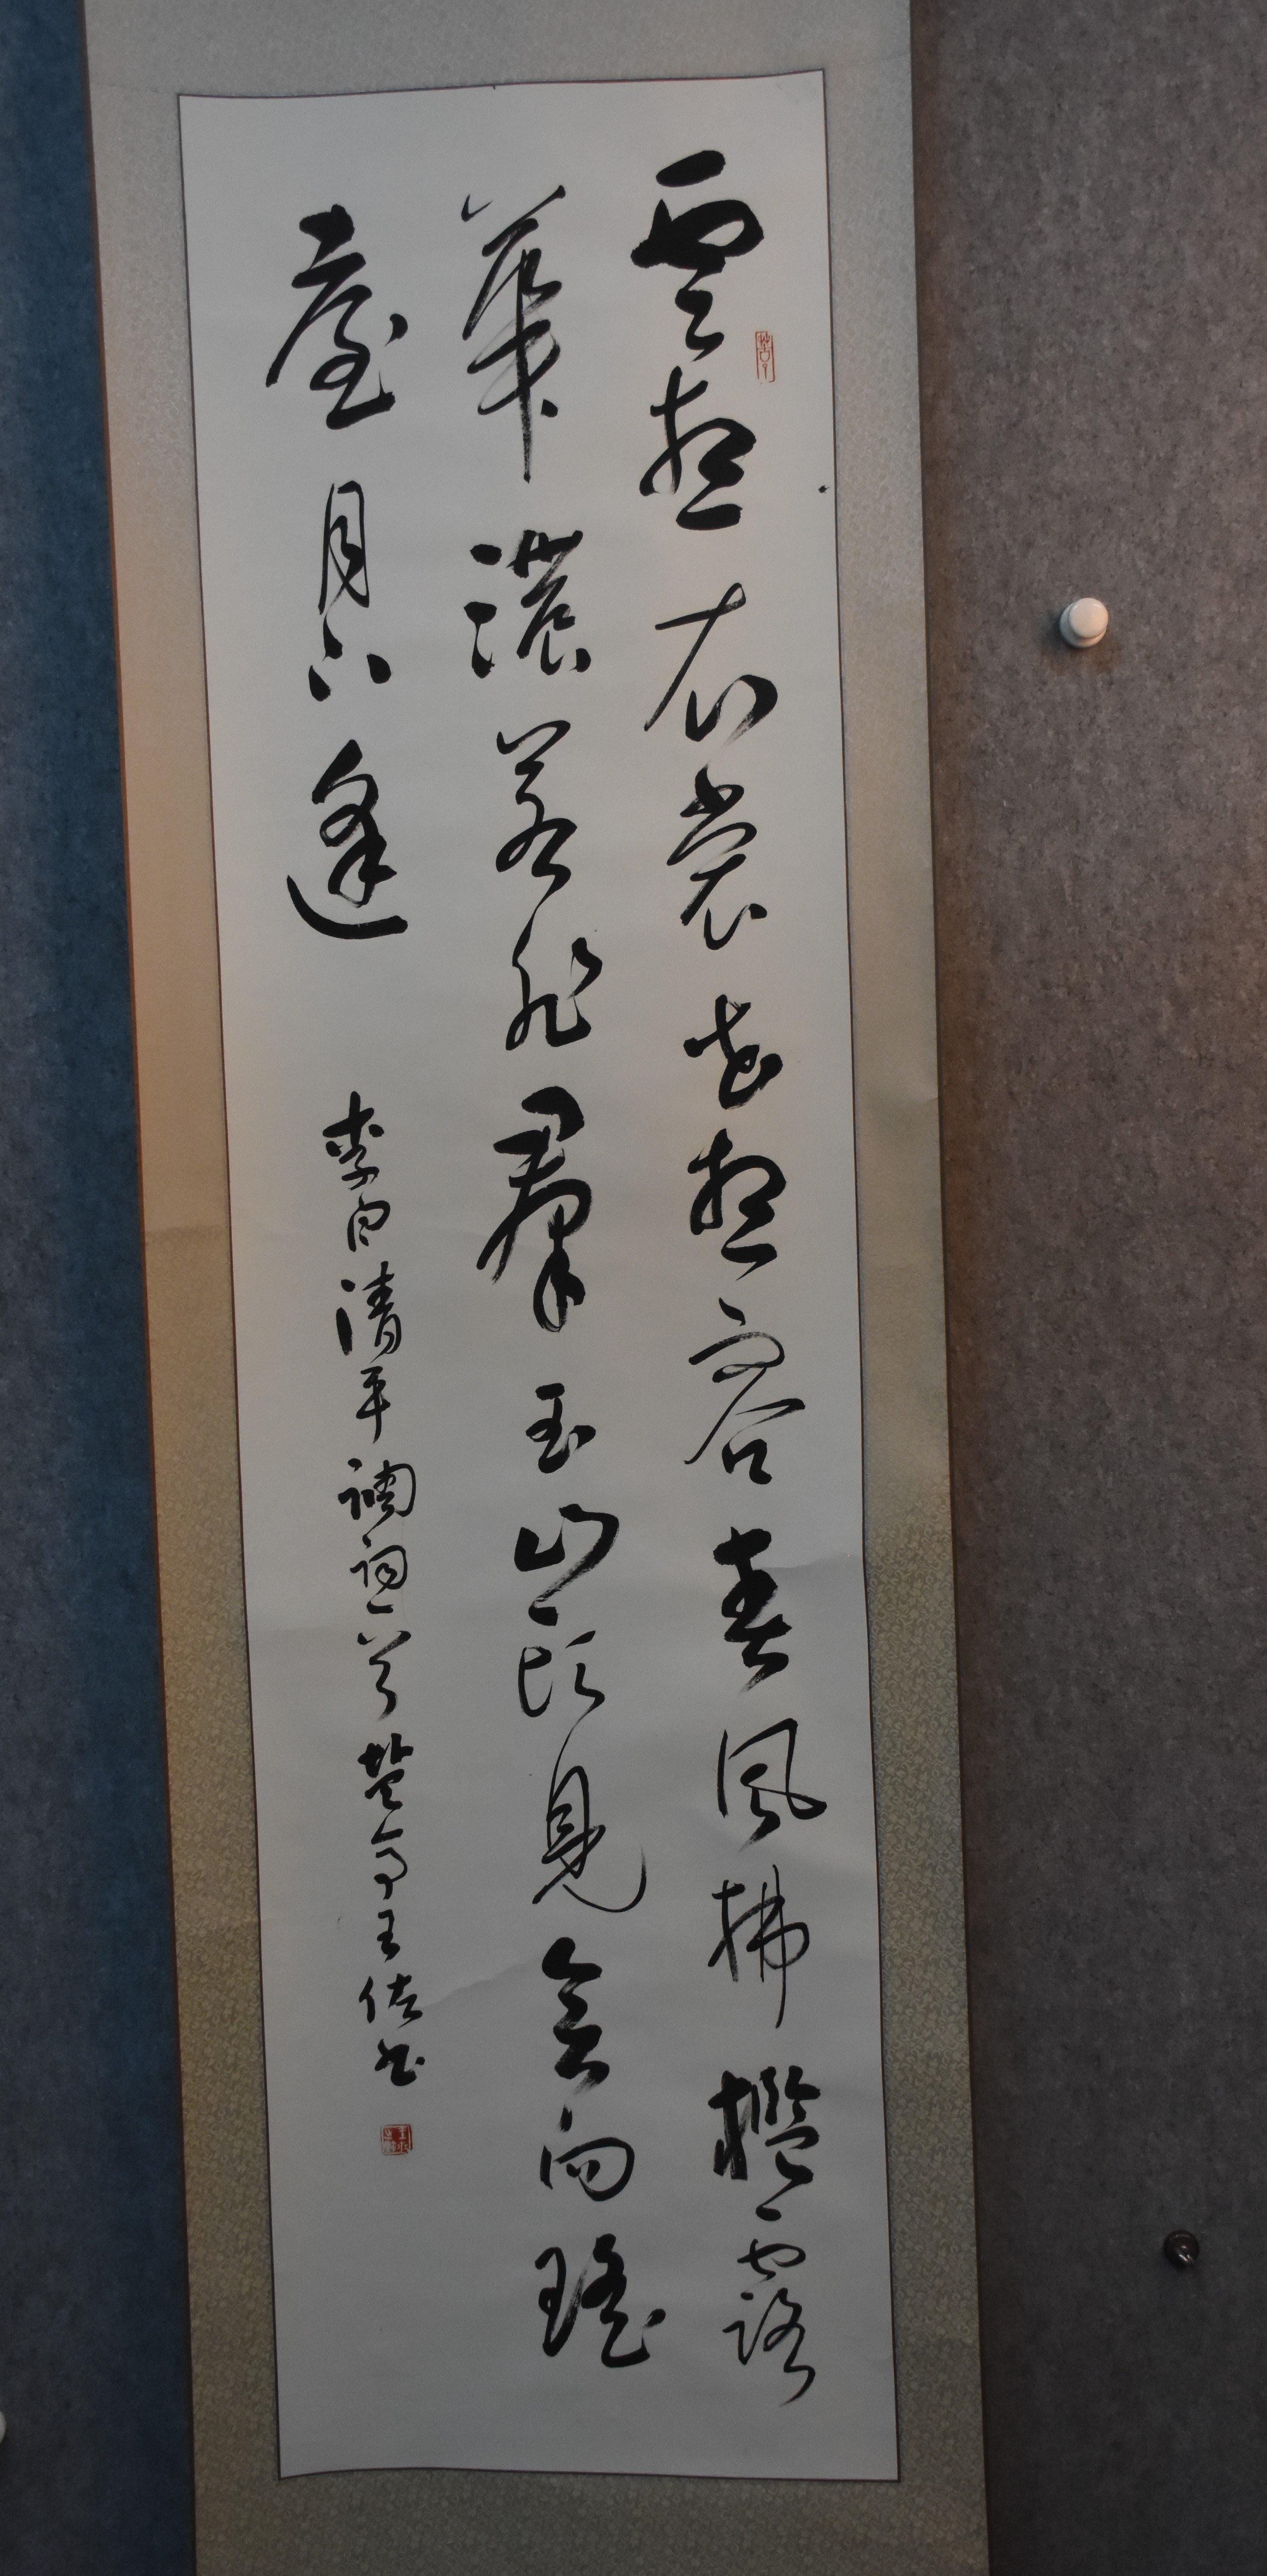 雲想衣裳花想容春風拂檻露
華濃若非羣玉山頭見會向瑤
臺月下逢
李白清平調詞一首鹽亭王佐書